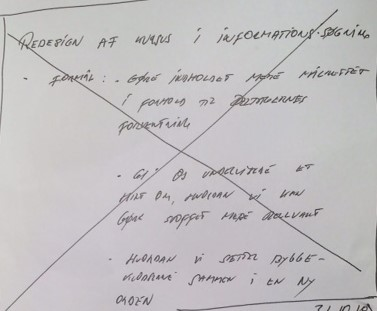 REDESIGN AF KURSUS I INFORMATIONS-SØGNING
- FORMÅL: - GØRE INDHOLDET MERE MÅLRETTET
I FORHOLD TIL DELTAGERNES
FORVENTNING
- GI' OS UNDERVISERE ET
HINT OM, HVORDAN VI KAN
GØRE STOFFET MERE RELEVANT
- HVORDAN VI SÆTTER BYGGE-
KLODSERNE SAMMEN I EN NY
ORDEN